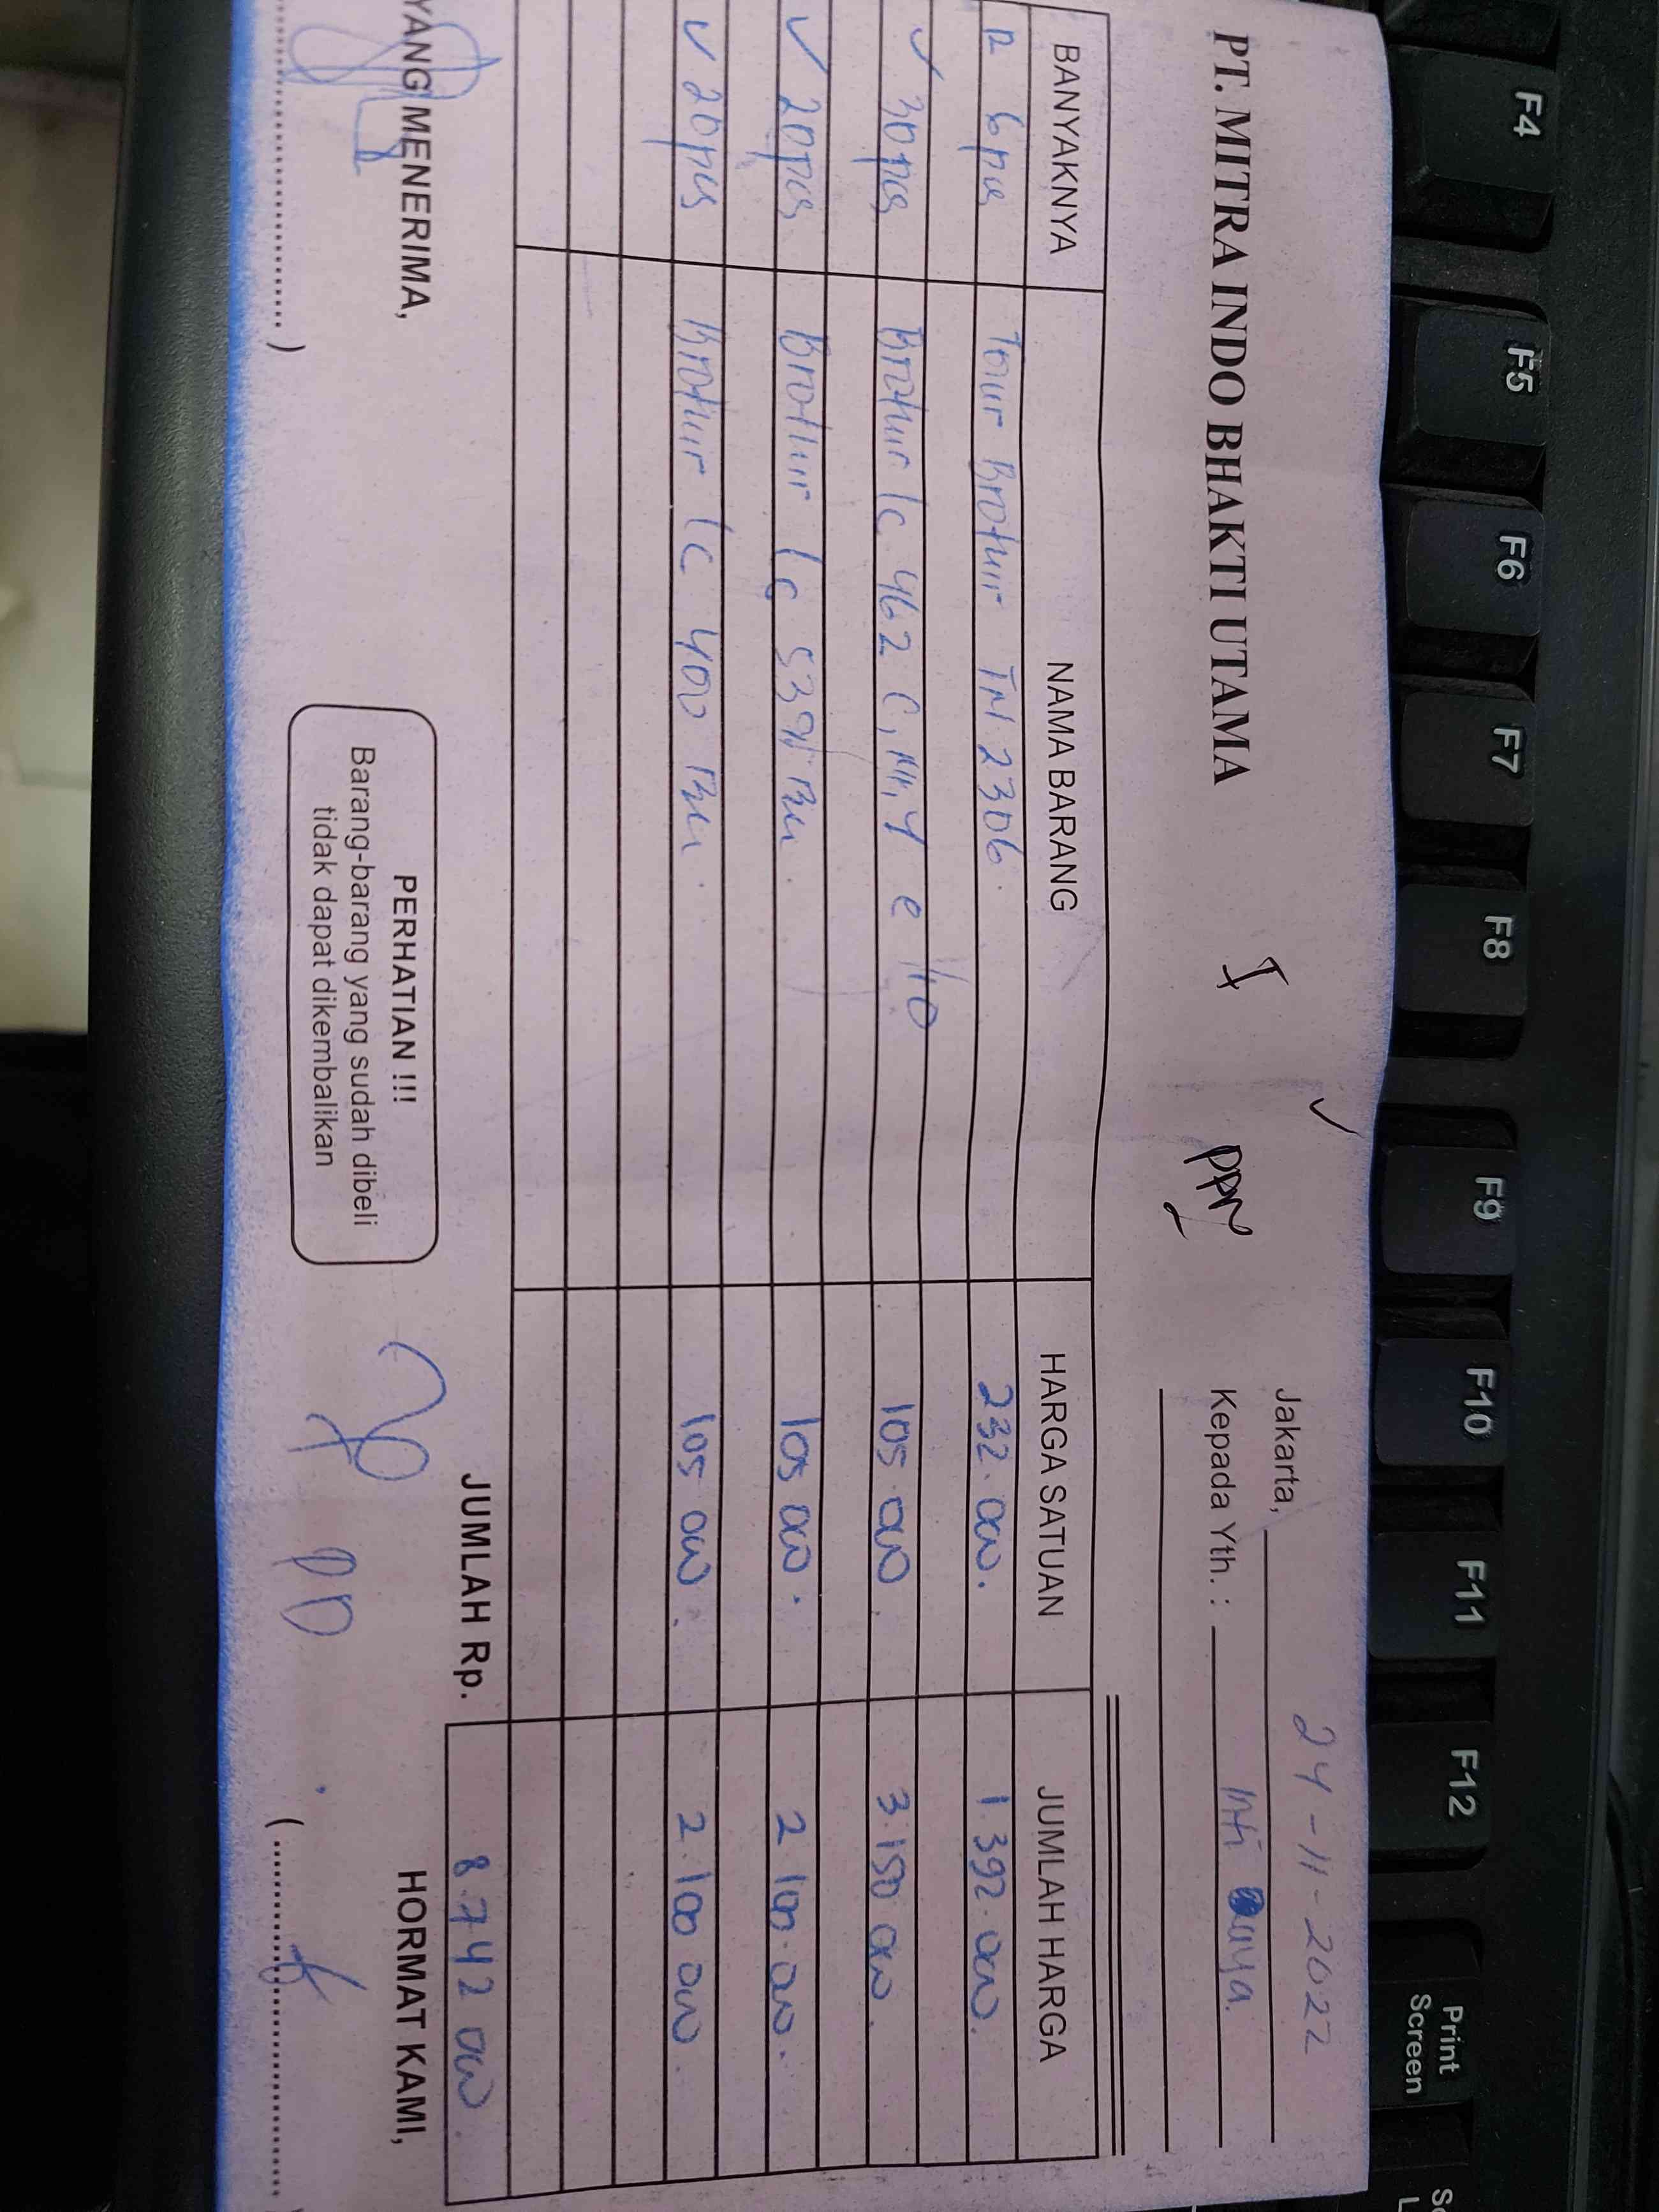 F4 F5 F6 F7 F8 F9 F10 F11 F12 Print Screen
PT. MITRA INDO BHAKTI UTAMA
I PPN
Jakarta, 24-11-2022
Kepada Yth. : Inti
BANYAKNYA NAMA BARANG HARGA SATUAN JUMLAH HARGA
6 pcs Brother TN 2306. 232.000. 1.392.000.
30 pcs Brother lc 462 C, M, Y @ 10 105.000 3.150.000.
20 pcs Brother lc 539 105.000. 2.100.000.
20 pcs Brother lc 400 105.000. 2.100.000.
JUMLAH Rp. 8.742.000
YANG MENERIMA, HORMAT KAMI,
PERHATIAN !!!
Barang-barang yang sudah dibeli
tidak dapat dikembalikan